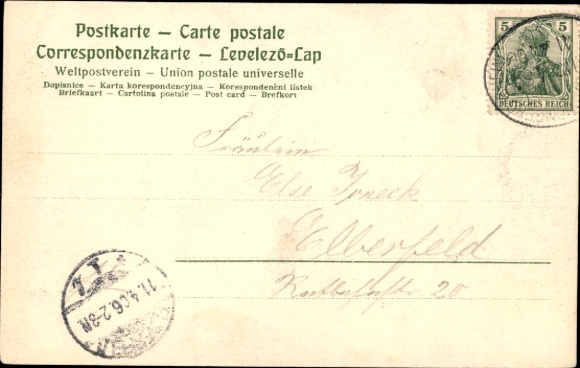 Postkarte – Carte postale
Correspondenzkarte – Levelező=Lap
Weltpostverein – Union postale universelle
Dopisnice – Karta korespondencyjna – Korespondenční lístek
Briefkaart – Cartolina postale – Post card – Brefkort
5 5
DEUTSCHES REICH
Fräulein
Else
Elberfeld
20
11.4.06.2-3N